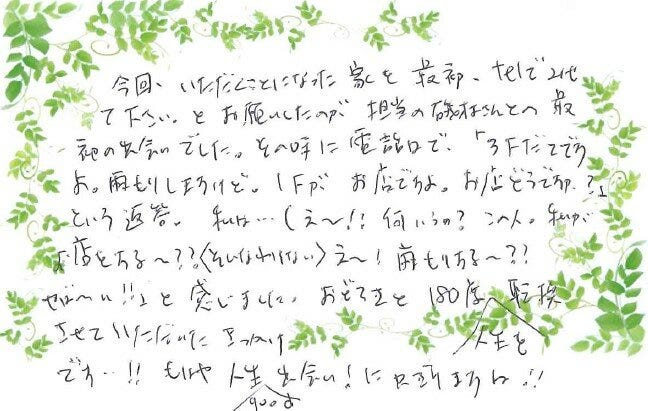 今回、いただくことになった家を最初、telで みせ
て下さい。とお願いしたのが 担当の磯村さんとの最
初の出会いでした。その時に電話口で、「3Fだてです
よ。雨もりしますけど。1Fが お店ですよ。お店どうですか?」
という返答。私は…(え〜!! 何いうの? この人。私が
お店をする〜??〈そんなわけない〉え〜! 雨もりする〜??
せば〜い!!」と感じました。おどろきと180度 人生を 転換
させていただいた きっかけ
です…!! もはや 人生 good な 出会い! に